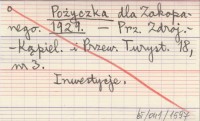 Pożyczka dla Zakopa-
nego. 1929. — Prz. Zdroj.-
-Kąpiel. i Przew. Turyst. 18,
nr 3.
Inwestycje.